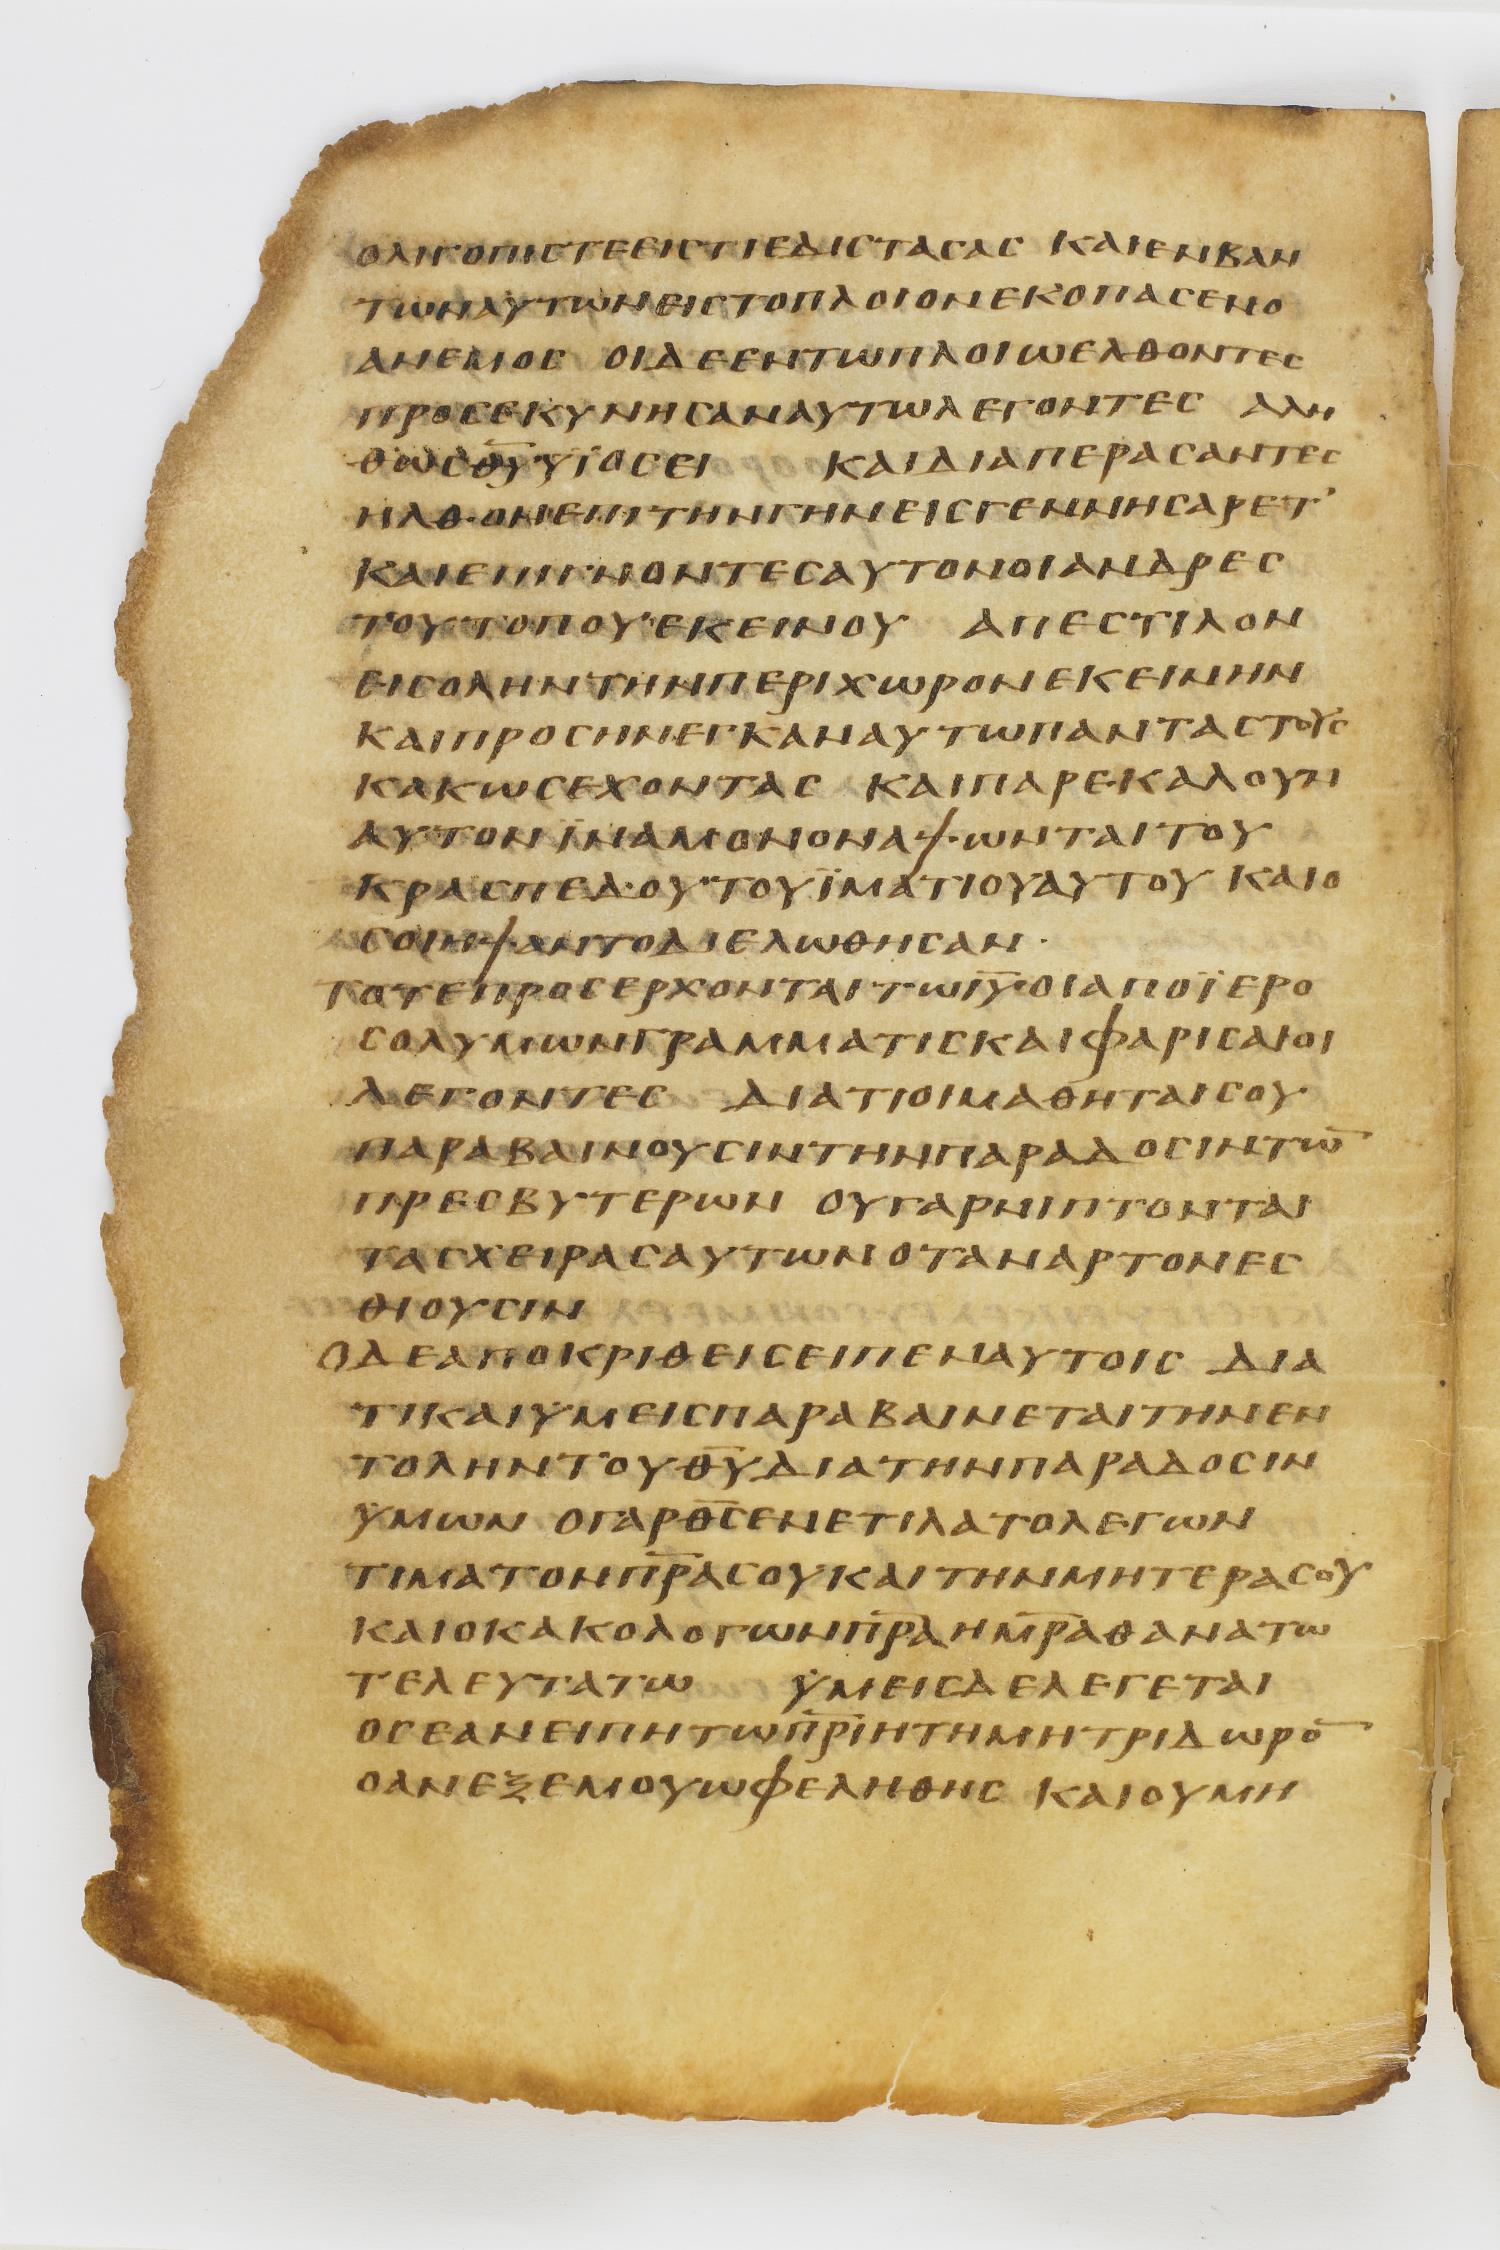 ολιγοπιστεειστιεδιστασασ καιενβαν
τωναυτωνειστοπλοιονεκοπασενο
ανεμοσ οιδεεντωπλοιωελθοντεσ
προσεκυνησαναυτωλεγοντεσ αλη
θωσθ̅υ̅ϋϊοσει καιδιαπερασαντεσ
ηλθονεπιτηνγηνεισγεννησαρετ’
καιεπιγνοντεσαυτονοιανδρεσ
τουτοπουεκεινου απεστιλον
εισοληντηνπεριχωρονεκεινην
καιπροσηνεγκαναυτωπανταστουσ
κακωσεχοντασ καιπαρεκαλουν
αυτονϊναμονοναψωνταιτου
κρασπεδουτουϊματιουαυτου καιο
σοιηψαντοδιεσωθησαν·
τοτεπροσερχονταιτωι̅υ̅οιαποϊερο
σολυμωνγραμματισκαιφαρισαιοι
λεγοντεσ διατιοιμαθηταισου
παραβαινουσιντηνπαραδοσιντω̅
πρεσβυτερων ουγαρνιπτονται
τασχειρασαυτωνοταναρτονεσ
θιουσιν
οδεαποκριθεισειπεναυτοισ δια
τικαιϋμεισπαραβαινεταιτηνεν
τοληντουθ̅υ̅διατηνπαραδοσιν
ϋμων ογαρθ̅σ̅ενετιλατολεγων
τιματονπ̅ρ̅α̅σουκαιτηνμητερασου
καιοκακολογωνπ̅ρ̅α̅ημ̅ρ̅α̅θανατω
τελευτατω ϋμεισδελεγεται
οσεανειπητωπ̅ρ̅ι̅ητημητριδωρο̅
οανεξεμουωφεληθησ καιουμη